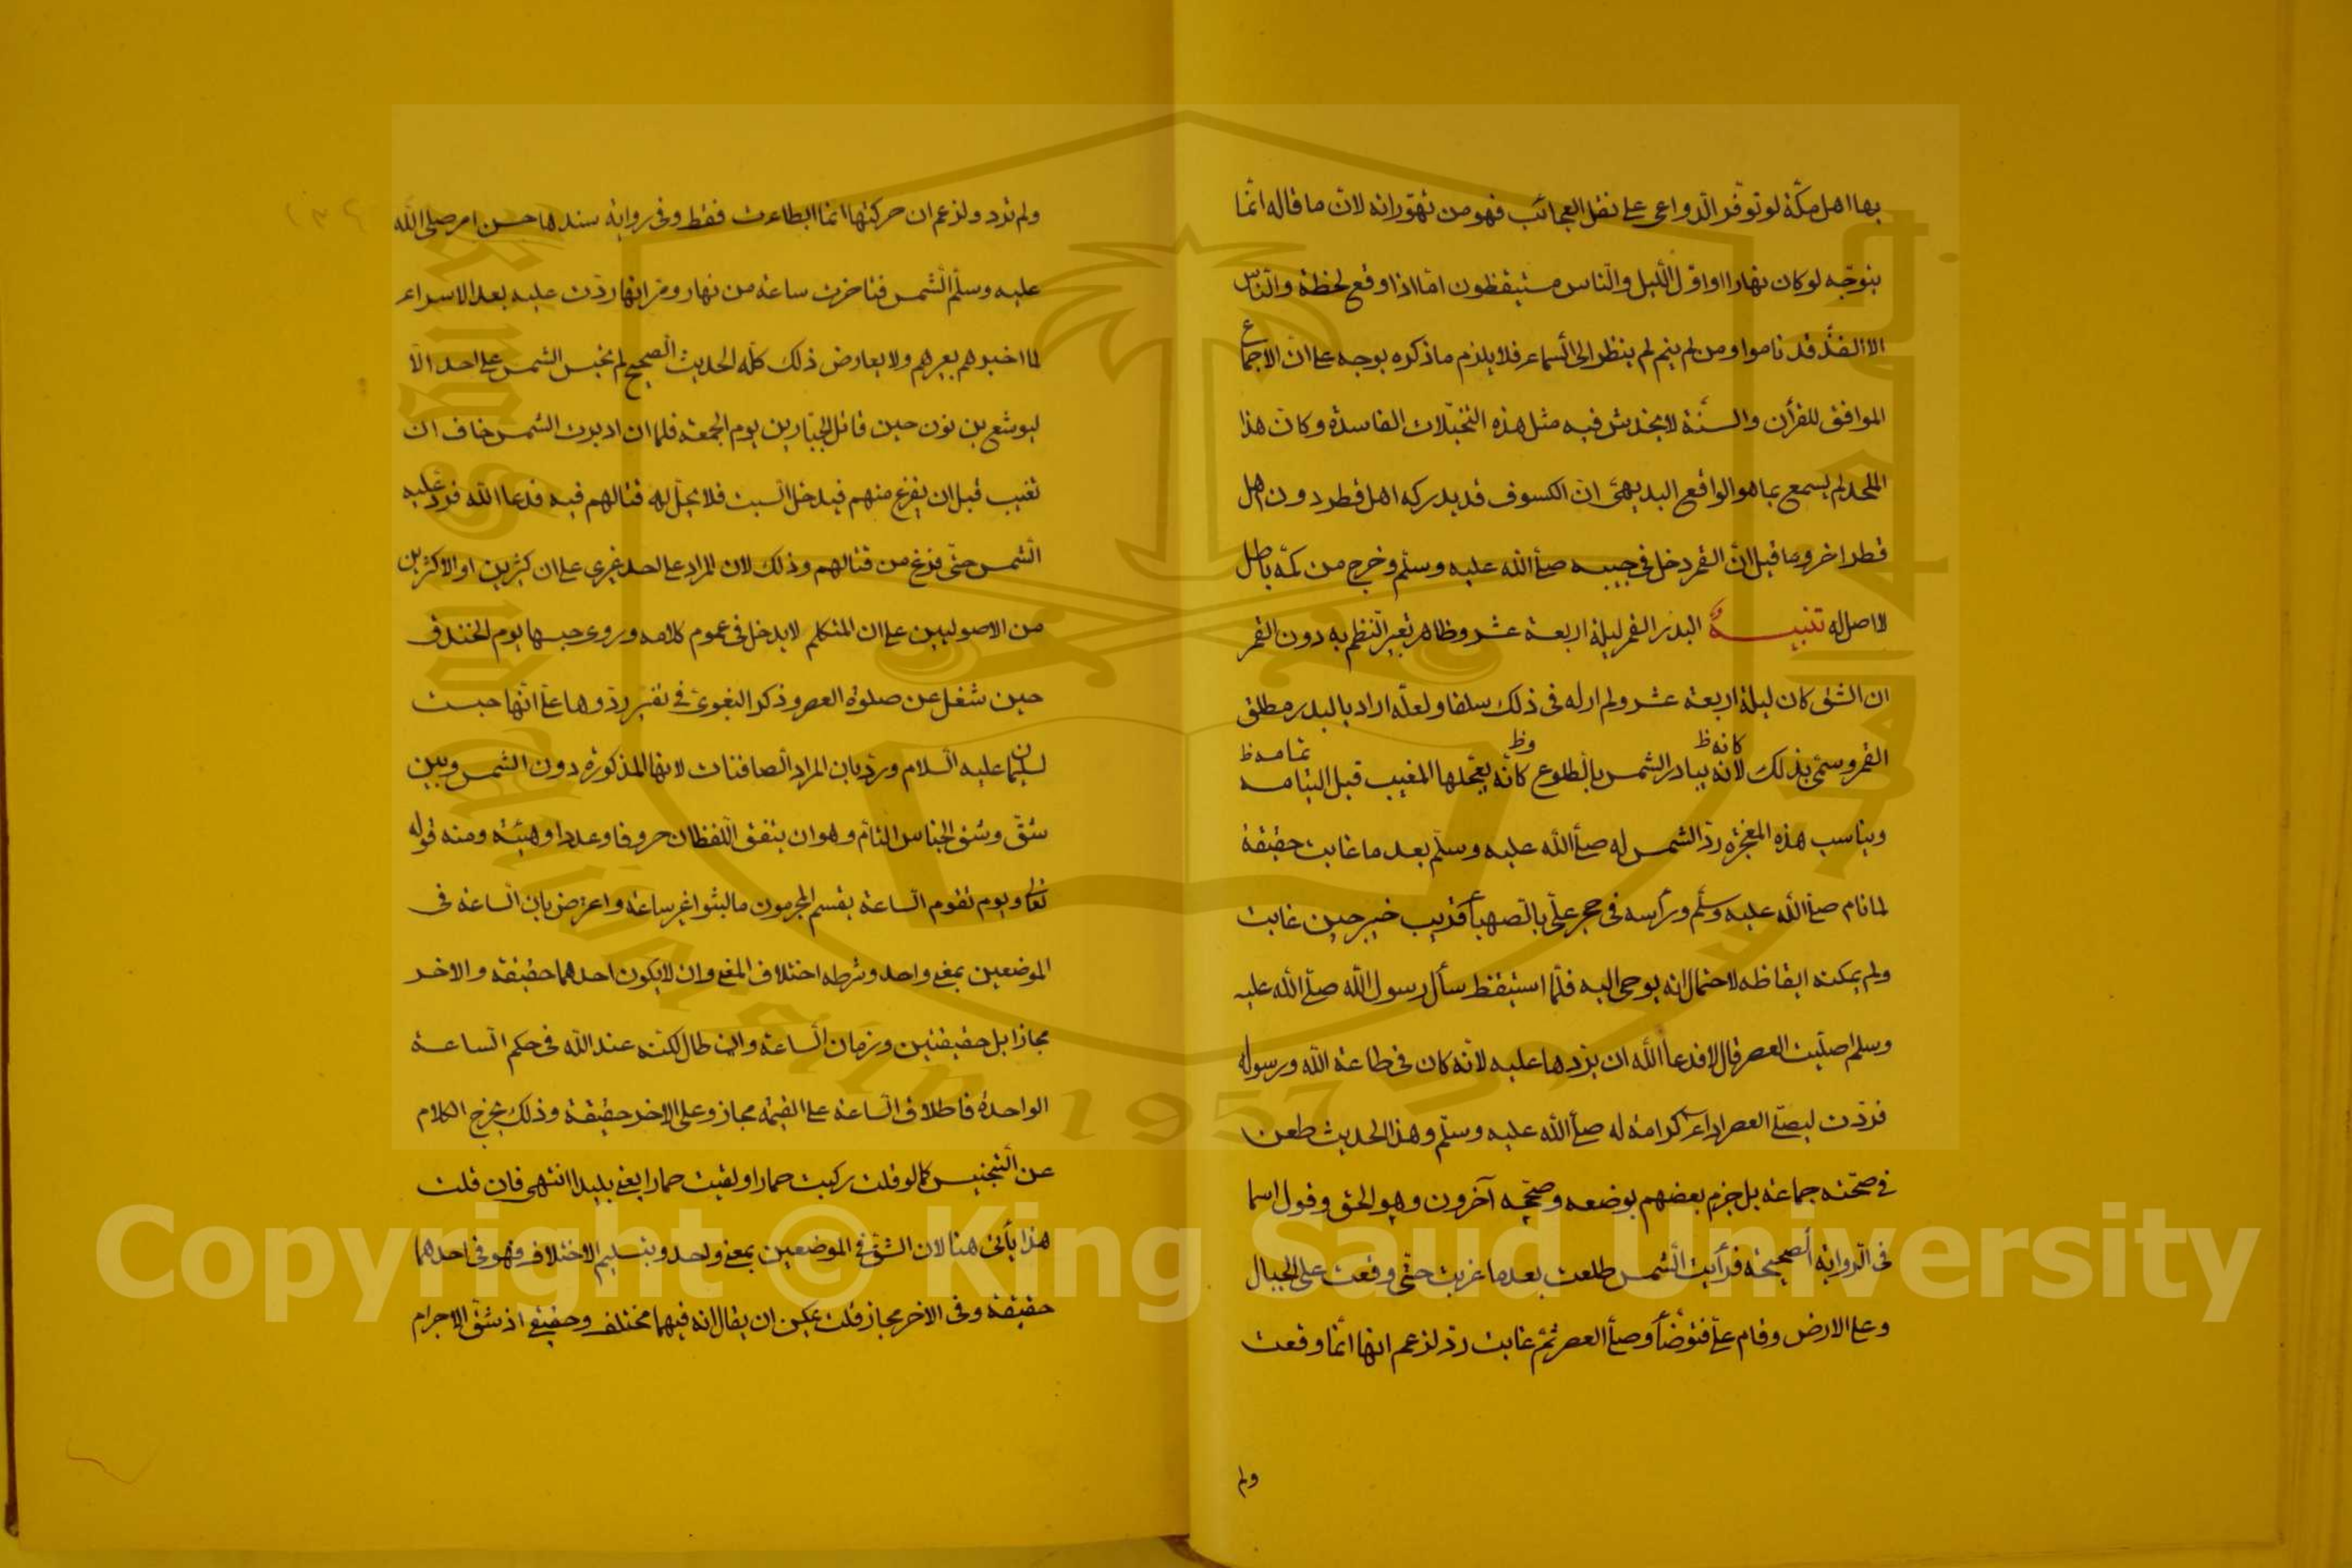 بها اهل مكّة لو توفّر الدّواعى على نقل العجائب فهو من تهوّراته لانّ ما قاله انّما
يتوجّه لو كان نهارا او اوّل اللّيل والنّاس مستيقظون امّا اذا وقع لحظة والنّاس
الا الفذّ قد ناموا ومن لم ينم لم ينظر الى السّماء فلا يلزم ما ذكره بوجه على انّ الاجماع
الموافق للقرأن والسنّة لا يخدش فيه مثل هذه التخيّلات الفاسدة وكانّ هذا
الملحد لم يسمع بما هو الواقع البديهىّ انّ الكسوف قد يدركه اهل قطر دون اهل
قطر اخر وما قيل انّ القمر دخل فى جيبه صلى الله عليه وسلّم وخرج من كمّه باطل
لا اصل له تنبيـــه البدر القمر ليلة اربعة عشر وظاهر تعبير النّظم به دون القمر
ان الشق كان ليلة اربعة عشر ولم ار له فى ذلك سلفا ولعلّه اراد بالبدر مطلق
القمر وسمّى بذلك لانه يبادر الشمس بالطلوع كانّه يعجّلها المغيب قبل التمامه
كانه ظ وظ تمامه ظ
ويناسب هذه المعجزة ردّ الشمس له صلى الله عليه وسلّم بعد ما غابت حقيقة
لما نام صلى الله عليه وسلّم ورأسه فى حجر علىّ بالصّهباء قريب خيبر حين غابت
ولم يمكنه ايقاظه لاحتمال انه يوحى اليه فلمّا استيقظ سأل رسول الله صلّى الله عليه
وسلم اصلّيت العصر قال لا فدعا الله ان يردها عليه لانّه كان فى طاعة الله ورسوله
فردّت ليصلّى العصر اداء كرامة له صلى الله عليه وسلّم وهذا الحديث طعن
فى صحّته جماعة بل جزم بعضهم بوضعه وصحّحه آخرون وهو الحق وقول اسما
فى الرّواية الصحيحة فرأيت الشّمس طلعت بعد ما غربت حتّى وقعت على الجبال
وعلى الارض وقام علىّ فتوضّأ وصلى العصر ثمّ غابت ردّ لزعم انها انّما وقعت
ولم
ولم ترد ولزعم ان حركتها انما ابطاءت فقط وفى رواية سندها حسن امر صلى الله
عليه وسلّم الشّمس فتاخرت ساعة من نهار ومرّ انها ردّت عليه بعد الاسراء
لما اخبرهم بعيرهم ولا يعارض ذلك كلّه الحديث الصّحيح لم تحبس الشمس على احد الّا
ليوشع بن نون حين قاتل الجبّارين يوم الجمعة فلما ان ادبرت الشمس خاف ان
تغيب قبل ان يفرغ منهم فيدخل السّبت فلا يحلّ له قتالهم فيه فدعا الله فردّ عليه
الشّمس حتّى فرغ من قتالهم وذلك لان المراد على احد غيرى على ان كثيرين او الاكثرين
من الاصوليين على ان المتكلم لا يدخل فى عموم كلامه وروى حبسها يوم الخندق
حين شغل عن صلوة العصر وذكر البغوىّ فى تفسير ردّوها علىّ انّها حبست
لسليمان عليه السّلام وردّ بان المراد الصّافنات لانها المذكورة دون الشمس وبين
شقّ وشق الجناس التامّ وهو ان يتفق اللّفظان حروفا وعددا وهيئة ومنه قوله
تعالى ويوم تقوم السّاعة يقسم المجرمون ما لبثوا غير ساعة واعترض بان السّاعة فى
الموضعين بمعنى واحد وشرطه اختلاف المعنى وان لا يكون احدهما حقيقة والاخر
مجازا بل حقيقتين وزمان السّاعة وان طال لكنّه عند الله فى حكم السّاعة
الواحدة فاطلاق السّاعة على القيمة مجاز وعلى الاخر حقيقة وذلك يخرج الكلام
عن التّجنيس كما لو قلت ركبت حمارا ولقيت حمارا يعنى بليدا انتهى فان قلت
هذا يأتى هنا لان الشقّ فى الموضعين بمعنى واحد وبتسليم الاختلاف فهو فى احدهما
حقيقة وفى الاخر مجاز قلت يمكن ان يقال انه فيهما مختلف وحقيقى اذ شقّ الاجرام
Copyright © King Saud University
King Saud University
1957